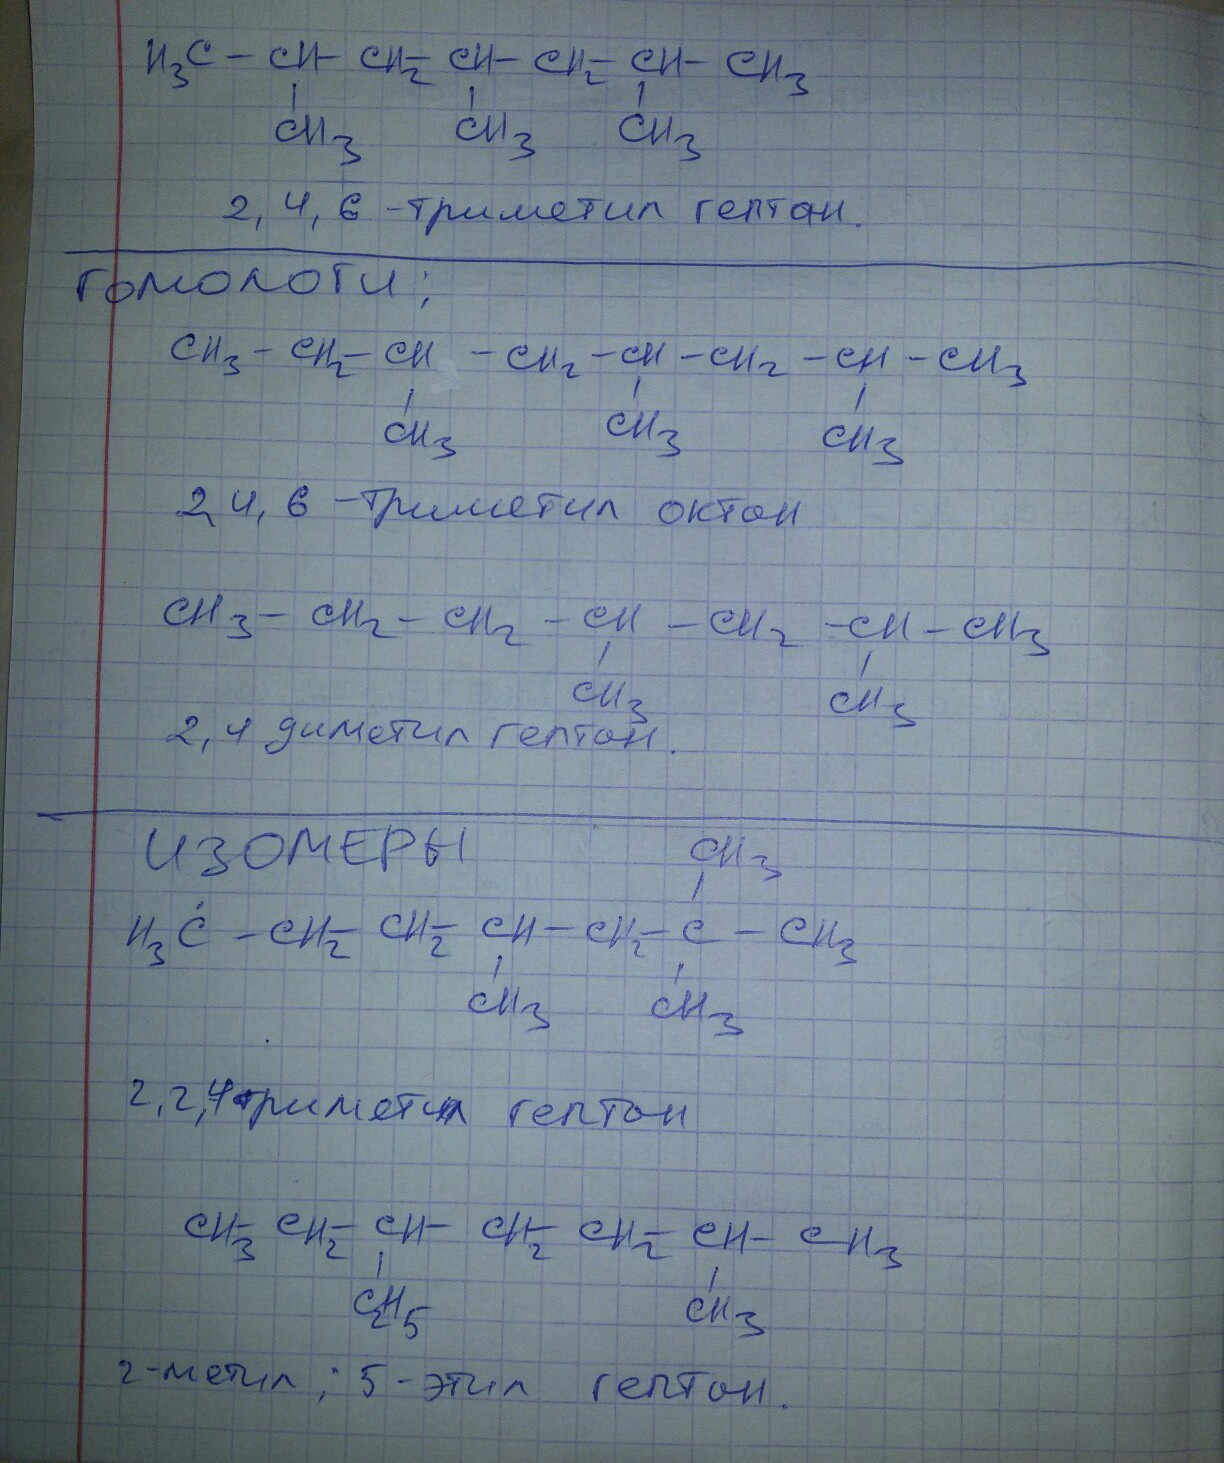 H₃C – CH – CH₂ – CH – CH₂ – CH – CH₃
CH₃ CH₃ CH₃
2, 4, 6 -триметил гептан.
Гомологи;
CH₃ – CH₂ – CH – CH₂ – CH – CH₂ – CH – CH₃
CH₃ CH₃ CH₃
2,4,6 -триметил октан
CH₃ – CH₂ – CH₂ – CH – CH₂ – CH – CH₃
CH₃ CH₃
2,4 диметил гептан.
ИЗОМЕРЫ
CH₃
H₃C – CH₂ – CH₂ – CH – CH₂ – C – CH₃
CH₃ CH₃
2,2,4 триметил гептан
CH₃ – CH₂ – CH – CH₂ – CH₂ – CH – CH₃
C₂H₅ CH₃
2-метил; 5-этил гептан.